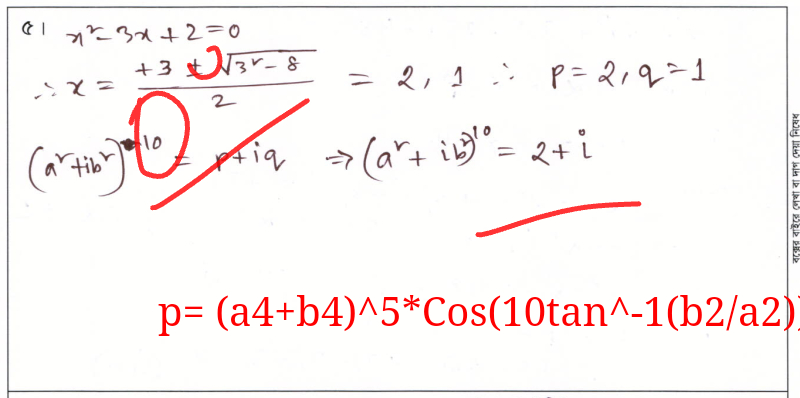 x² - 3x + 2 = 0
∴ x = +3 ± √3² - 8 / 2 = 2, 1 ∴ p = 2, q = 1
(a² + ib²)^10 = p + iq ⇒ (a² + ib²)^10 = 2 + i
p= (a4+b4)^5*Cos(10tan^-1(b2/a2))
বক্সের বাইরে লেখা বা দাগ দেয়া নিষেধ